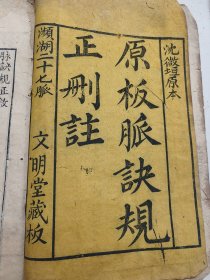 沈微垣原本
原板脈訣規
正刪註
瀕湖二十七脈
文明堂藏板